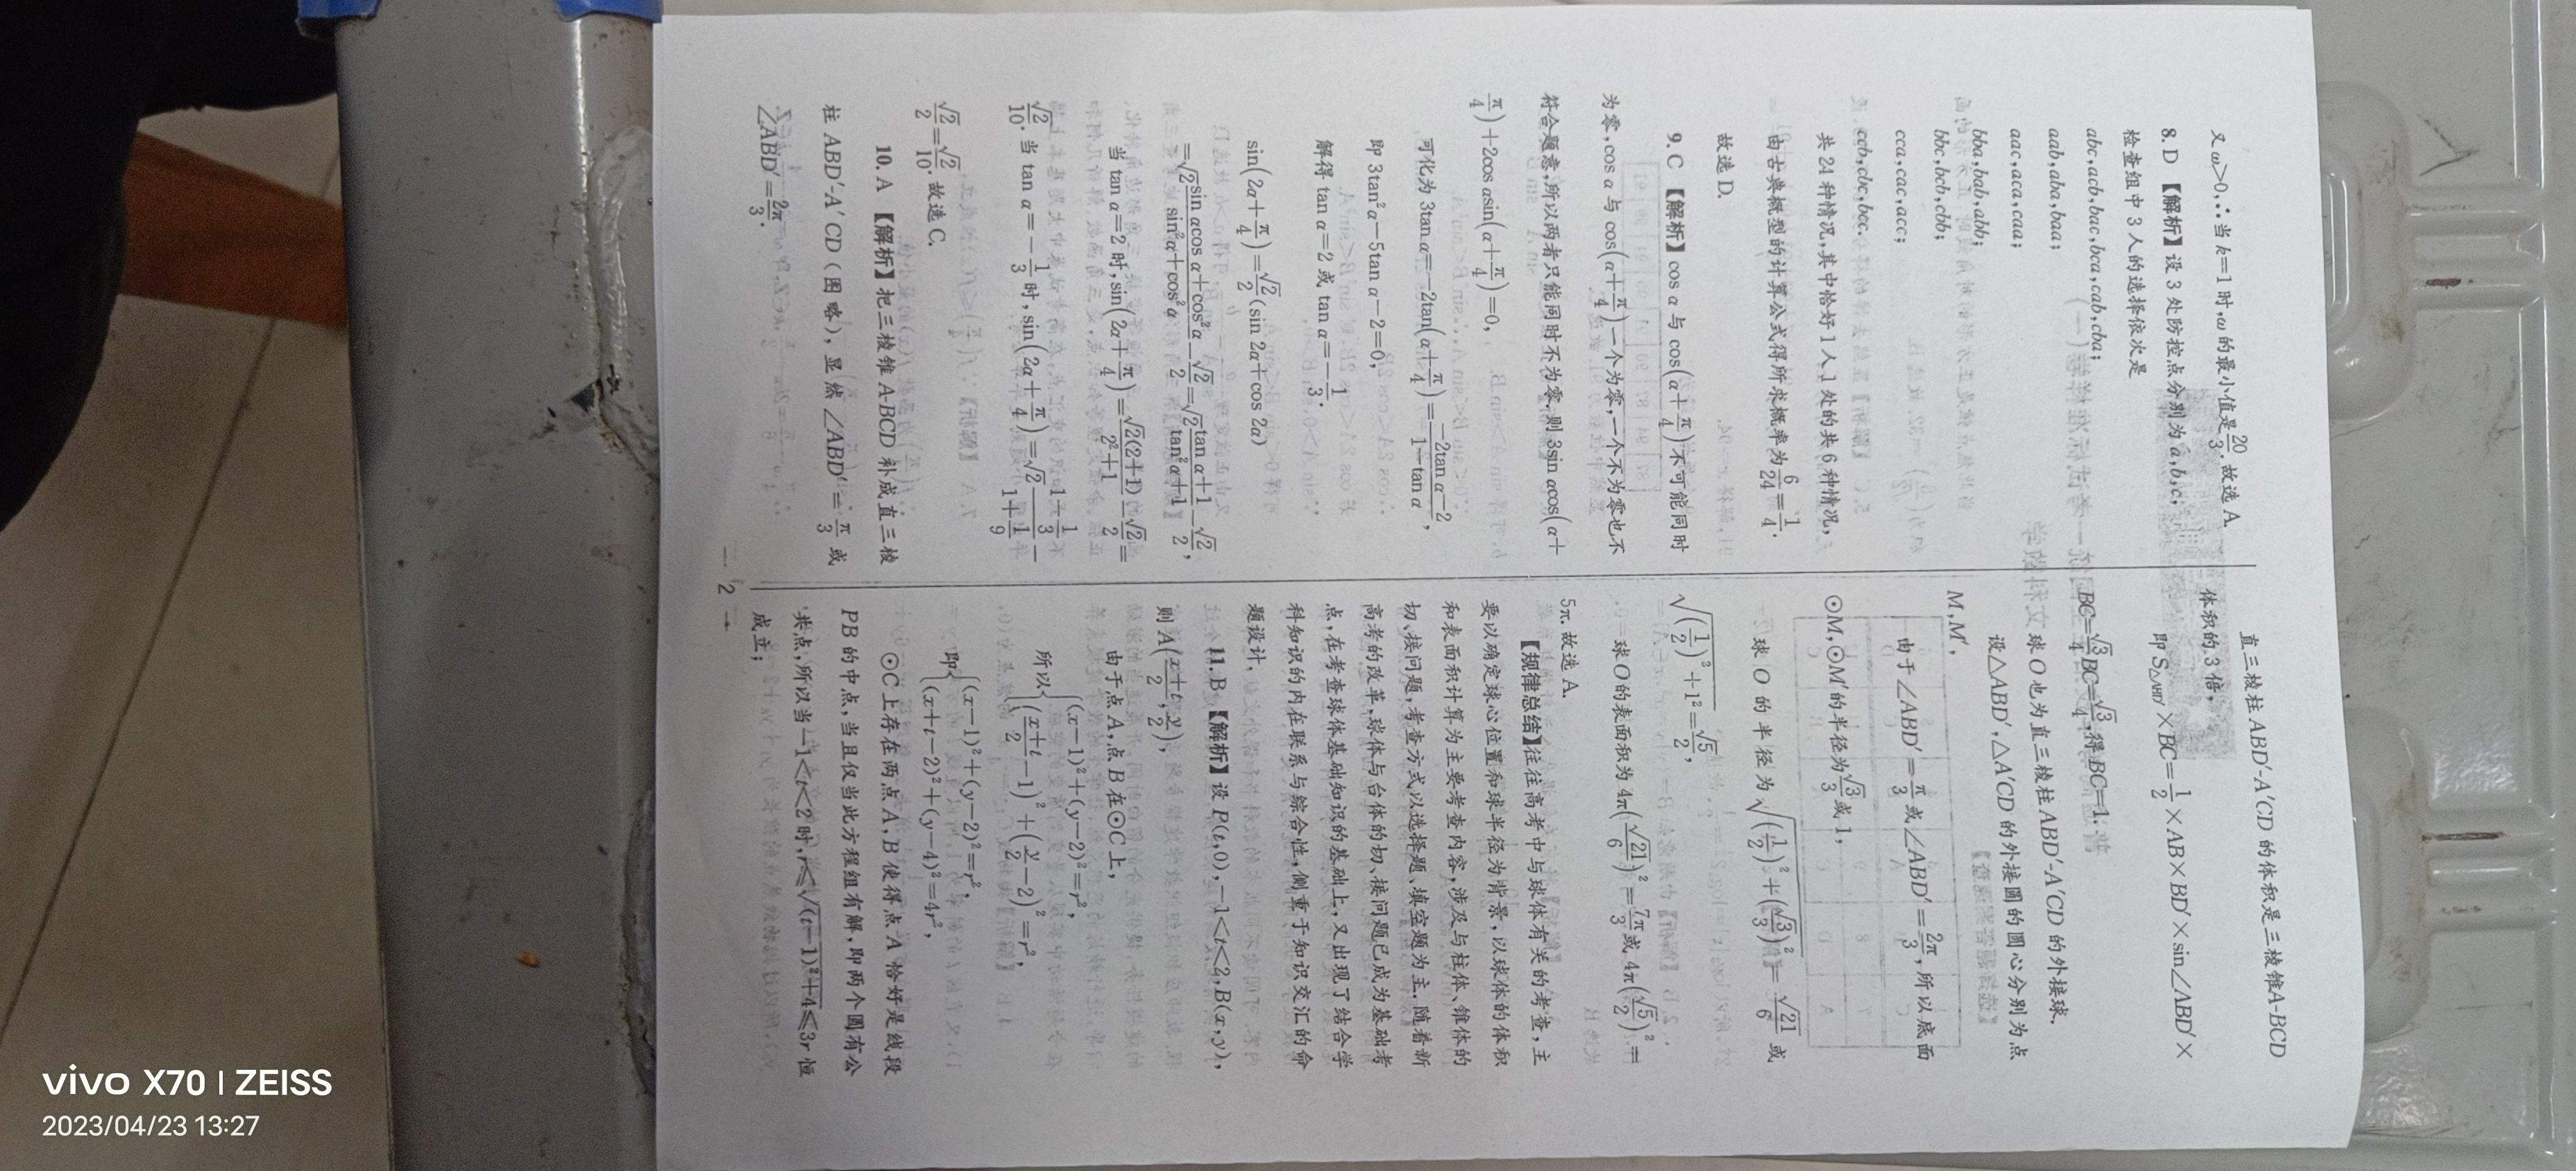 又 ω>0,∴当 k=1 时,ω 的最小值是20/3. 故选 A.
8. D 【解析】设 3 处防控点分别为 a,b,c,
检查组中 3 人的选择依次是
abc,acb,bac,bca,cab,cba;
aab,aba,baa;
aac,aca,caa;
bba,bab,abb;
bbc,bcb,cbb;
cca,cac,acc;
ccb,cbc,bcc.
共 24 种情况,其中恰好 1 人 1 处的共 6 种情况,
由古典概型的计算公式得所求概率为6/24=1/4.
故选 D.
9. C 【解析】cos α 与 cos(α+π/4)不可能同时
为零,cos α 与 cos(α+π/4)一个为零,一个不为零也不
符合题意,所以两者只能同时不为零.则 3sin αcos(α+
π/4)+2cos αsin(α+π/4)=0,
可化为 3tan α=-2tan(α+π/4)=(-2tan α-2)/(1-tan α),
即 3tan²α-5tan α-2=0,
解得 tan α=2 或 tan α=-1/3.
sin(2α+π/4)=√2/2(sin 2α+cos 2α)
=√2(sin αcos α+cos²α)/(sin²α+cos²α)-√2/2=√2(tan α+1)/(tan²α+1)-√2/2,
当 tan α=2 时,sin(2α+π/4)=√2(2+1)/(2²+1)-√2/2=
√2/10. 当 tan α=-1/3时,sin(2α+π/4)=√2(1-1/3)/(1+1/9)-
√2/2=√2/10. 故选 C.
10. A 【解析】把三棱锥 A-BCD 补成直三棱
柱 ABD′-A′CD(图略),显然 ∠ABD′=π/3 或
∠ABD′=2π/3.
直三棱柱 ABD′-A′CD 的体积是三棱锥A-BCD
体积的 3 倍,
即 S△ABD′×BC=1/2×AB×BD′×sin∠ABD′×
BC=√3/4BC=√3/4,得 BC=1.
球 O 也为直三棱柱 ABD′-A′CD 的外接球.
设△ABD′,△A′CD 的外接圆的圆心分别为点
M,M′,
由于 ∠ABD′=π/3 或 ∠ABD′=2π/3,所以底面
⊙M,⊙M′的半径为√3/3或 1,
球 O 的半径为 √((1/2)²+(√3/3)²)=√21/6 或
√((1/2)²+1²)=√5/2,
球 O 的表面积为 4π(√21/6)²=7π/3或 4π(√5/2)²=
5π. 故选 A.
【规律总结】往往高考中与球体有关的考查,主
要以确定球心位置和球半径为背景,以球体的体积
和表面积计算为主要考查内容,涉及与柱体、锥体的
切、接问题,考查方式以选择题、填空题为主. 随着新
高考的改革,球体与台体的切、接问题已成为基础考
点,在考查球体基础知识的基础上,又出现了结合学
科知识的内在联系与综合性,侧重于知识交汇的命
题设计.
11. B 【解析】设 P(t,0),-1<t<2,B(x,y),
则 A((x+t)/2,y/2),
由于点 A,点 B 在⊙C 上,
所以{(x-1)²+(y-2)²=r²,
((x+t)/2-1)²+(y/2-2)²=r²,
即{(x-1)²+(y-2)²=r²,
(x+t-2)²+(y-4)²=4r²,
⊙C 上存在两点 A,B 使得点 A 恰好是线段
PB 的中点,当且仅当此方程组有解,即两个圆有公
共点,所以当-1<t<2 时,r≤√((t-1)²+4)≤3r 恒
成立;
— 2 —
vivo X70 | ZEISS
2023/04/23 13:27